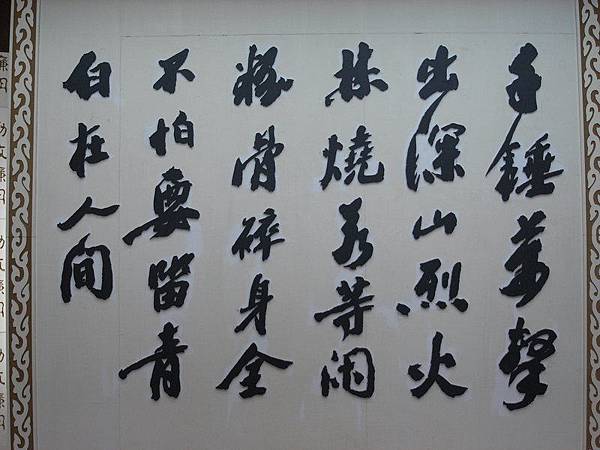 手錘萬擊
出深山烈火
焚燒若等閑
粉骨碎身全
不怕要留青
白在人間